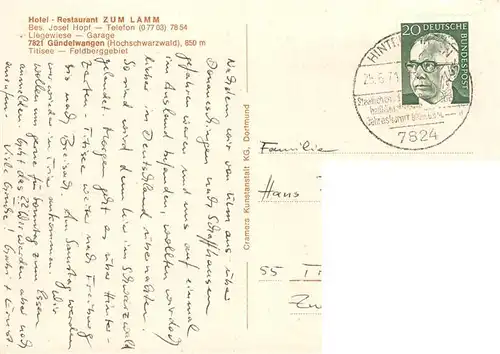 Hotel - Restaurant ZUM LAMM
Bes. Josef Hopf — Telefon (0 77 03) 78 54
Liegewiese — Garage
7821 Gündelwangen (Hochschwarzwald), 850 m
Titisee - Feldberggebiet
Nachdem wir von Ulm aus über
Donaueschingen nach Schaffhausen
gefahren waren und uns auf einmal
im Ausland befanden, wollten wir doch
lieber in Deutschland übernachten.
So sind wir dem hier im Schwarzwald
gelandet. Morgen geht es über Hinter-
zarten, Titisee weiter nach Freiburg
bis nach Breisach. Am Samstag werden
wir wieder in Trier ankommen. Wir
wollen uns gerne für Sonntag zum Essen
anmelden. Geht das? Wir werden aber noch
anrufen. Viele Grüße!
Cramers Kunstanstalt KG, Dortmund
20
DEUTSCHE BUNDESPOST
HINTERZ
7824
Familie
Hans
55 T